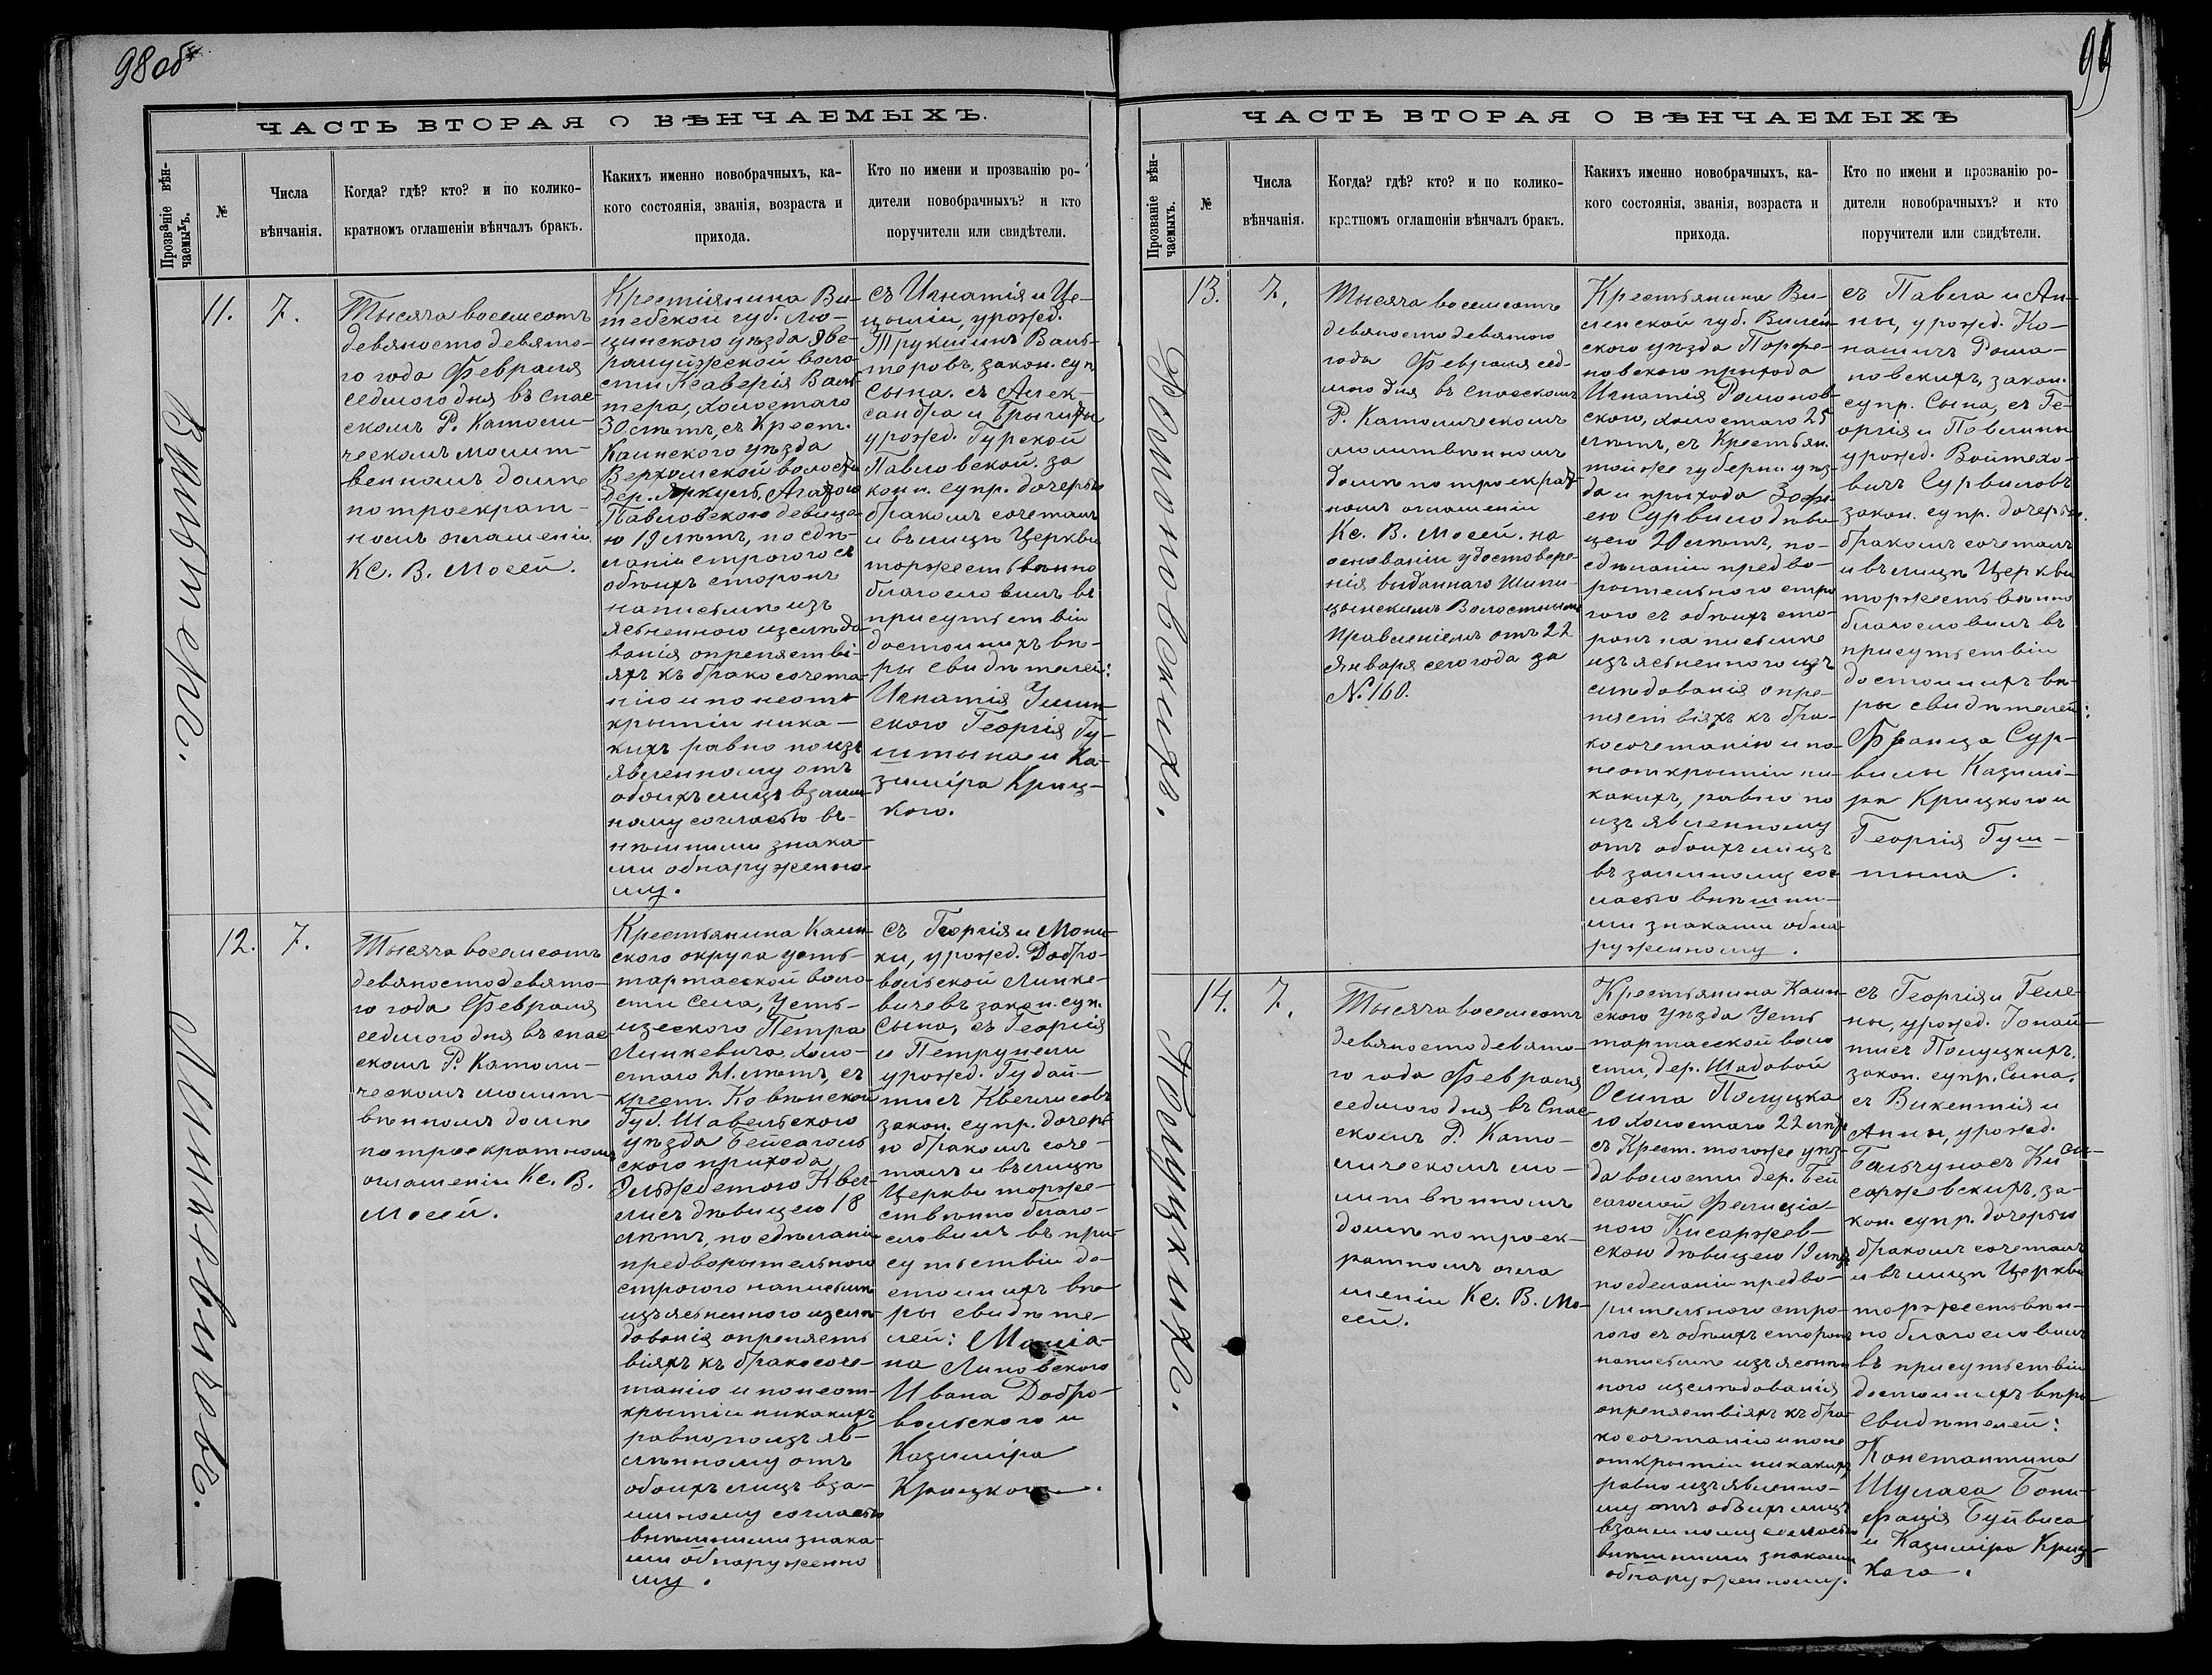 98 об
ЧАСТЬ ВТОРАЯ О ВѢНЧАЕМЫХЪ.
Прозваніе вѣн-
чаемыхъ.
№
Числа
вѣнчанія.
Когда? гдѣ? кто? и по колико-
кратномъ оглашеніи вѣнчалъ бракъ.
Какихъ именно новобрачныхъ, ка-
кого состоянія, званія, возраста и
прихода.
Кто по имени и прозванію ро-
дители новобрачныхъ? и кто
поручители или свидѣтели.
Вальтеръ.
11.
7.
Тысяча восемсотъ
девяносто девято-
го года Февраля
седмого дня въ Спас-
скомъ Р. Католи-
ческомъ молит-
венномъ домѣ
по троекрат-
номъ оглашеніи
Кс. В. Мосей.
Крестіянина Ви-
тебской губ. Лю-
цинского уѣзда Яве-
воло-
сти Ксаверія Валь-
тера, холостаго
30 лѣтъ, съ Крест.
Каинского уѣзда
волости
дер. Яркуль, Агафію
Павловскою девице-
ю 19 лѣтъ, по сдѣ-
ланіи строгого съ
обѣихъ сторонъ
на письмѣ изъ
яснненного изслѣдо-
ванія о препятстві-
яхъ къ бракосочета-
нію и по неот-
крытіи ника-
кихъ равно по изъ
явленному отъ
обоихъ лицъ взаим-
ному согласію въ-
нѣшними знака-
ми обнаруженно-
му.
съ Игнатія и Це-
цыліи, урожд.
Валь-
теровъ, закон. суп
сына. съ Алек-
сандра и Бригиды
урожд. Гурской
Павловской. за
конн. супр. дочерью
бракомъ сочеталъ
и въ лицѣ Церкви
торжественно
благословилъ въ
присутствіи
достойныхъ вѣ-
ры свидѣтелей:
Игнатія
Георгія Гу-
штына и Ка-
зиміра Криц-
кого.
Линкевичовъ.
12.
7.
Тысяча восемсотъ
девяносто девято-
го года Февраля
седмого дня въ Спас-
скомъ Р. Католи-
ческомъ молит-
вѣнномъ домѣ
по троекратномъ
оглашеніи Кс. В.
Мосей.
Крестьянина Каин-
ского округа Усть-
тартасской воло-
сти села, Усть-
изеского Петра
Линкевича, холо-
стаго 21 лѣтъ, съ
крест. Ковѣнской
Губ. Шавельского
уѣзда Бейсаголь
ского прихода
Эльжбетою Квел-
лисъ дѣвицею 18
лѣтъ, по сдѣланіи
предворительного
строгого на письмѣ
изъяснненного изслѣ-
дованія о препятст
віяхъ къ бракосоче-
танію и по неот-
крытіи никакихъ
равно, по изъяв-
лѣнному отъ
обоихъ лицъ вза-
имному согласію
внѣшними знака-
ми обнаруженно
му.
съ Георгія и Мони-
ки, урожд. Добро-
вольской Линке-
вичевъ закон. суп.
сына, съ Георгія
и Петрунели
урожд. Гудай-
тисъ Квеллисовъ
закон. супр. дочерь-
ю бракомъ соче-
талъ и въ лицѣ
Церкви торже-
ствѣнно благо-
словилъ въ при-
сутствіи до-
стойныхъ вѣ-
ры свидѣте-
лей:
на Липовского
Ивана Добро-
вольского и
Казиміра
Крицкого.
99
ЧАСТЬ ВТОРАЯ О ВѢНЧАЕМЫХЪ
Прозваніе вѣн-
чаемыхъ.
№
Числа
вѣнчанія.
Когда? гдѣ? кто? и по колико-
кратномъ оглашеніи вѣнчалъ бракъ.
Какихъ именно новобрачныхъ, ка-
кого состоянія, званія, возраста и
прихода.
Кто по имени и прозванію ро-
дители новобрачныхъ? и кто
поручители или свидѣтели.
Романовскихъ.
13.
7.
Тысяча восемсотъ
девяносто девятого
года Февраля сед-
мого дня въ Спасскомъ
Р. Католическомъ
молитвѣнномъ
домѣ по троекрат-
номъ оглашеніи
Кс. В. Мосей. на
основаніи удостовере-
нія выданнаго Шипи-
цынскимъ Волостнымъ
Правленіемъ отъ 22
Января сего года за
№ 160.
Крестьянина Ви-
ленской губ. Вилей-
ского уѣзда Порфе-
новского прихода
Игнатія Романов-
ского, холостаго 25
лѣтъ, съ Крестьян.
той же губерніи уѣз-
да и прихода Зофі-
ею Сурвило дѣви-
цею 20 лѣтъ, по-
сдѣланіи предво-
рительного стро
гого съ обѣихъ сто-
ронъ на письмѣ
изъяснненного изъ
слѣдованія о пре-
пятствіяхъ къ бра-
косочетанію и по-
неоткрытіи ни-
какихъ, равно по
изъявленному
отъ обоихъ лицъ
взаимному сог
ласію внѣшни-
ми знаками обна
руженному.
съ Павла и Ан-
ны, урожд. Ко-
нашичъ Рома-
новскихъ, закон.
супр. сына, съ Ге-
оргія и Павлины
урожд. Войтехо-
вичъ Сурвиловъ
закон. супр. дочерью.
бракомъ сочеталъ
и въ лицѣ Церкви
торжествѣнно
благословилъ въ
присутствіи
достойныхъ вѣ-
ры свидѣтелей:
Франца Сур-
вилы Казимі-
ра Крицкого и
Георгія Гуш-
тына.
Полуцкихъ.
14.
7.
Тысяча восемсотъ
девяносто девято-
го года Февраля
седмого дня въ Спас-
скомъ Р. Като-
лическомъ мо-
литвѣнномъ
домѣ по троек-
ратномъ огла
шеніи Кс. В. Мо-
сей.
Крестьянина Каин-
ского Уѣзда Усть
тартасской воло
сти, дер. Шадовой
Осипа Полуцка
го холостаго 22 лѣтъ
съ Крест. того же уѣз-
да волости дер. Бей
саголой Фелиціа-
ною Кисаржев-
скою дѣвицею 19 лѣтъ
по сделаніи предво-
рительного стро-
гого съ обѣихъ сторонъ
на письмѣ изъяснѣн
ного изслѣдованія
о препятствіяхъ къ бра-
косочетанію и по не
открытіи никакихъ
равно изъявленно-
му отъ обѣихъ лицъ
взаимному согласію
внѣшними знаками
обнаруженному.
съ Георгія и Геле-
ны, урожд. Іонай-
тисъ Полуцкихъ.
закон. супр. сына.
съ Викентія и
Анны, урожд.
Бальчунасъ Ки
саржевскихъ, за-
кон. супр. дочерью
бракомъ сочеталъ
и въ лицѣ Церкви
торжествѣн-
но благословилъ
въ присутствіи
достойныхъ вѣры
свидѣтелей:
Константина
Шуласа Бони-
фація Буйвиса
и Казиміра Криц-
каго.